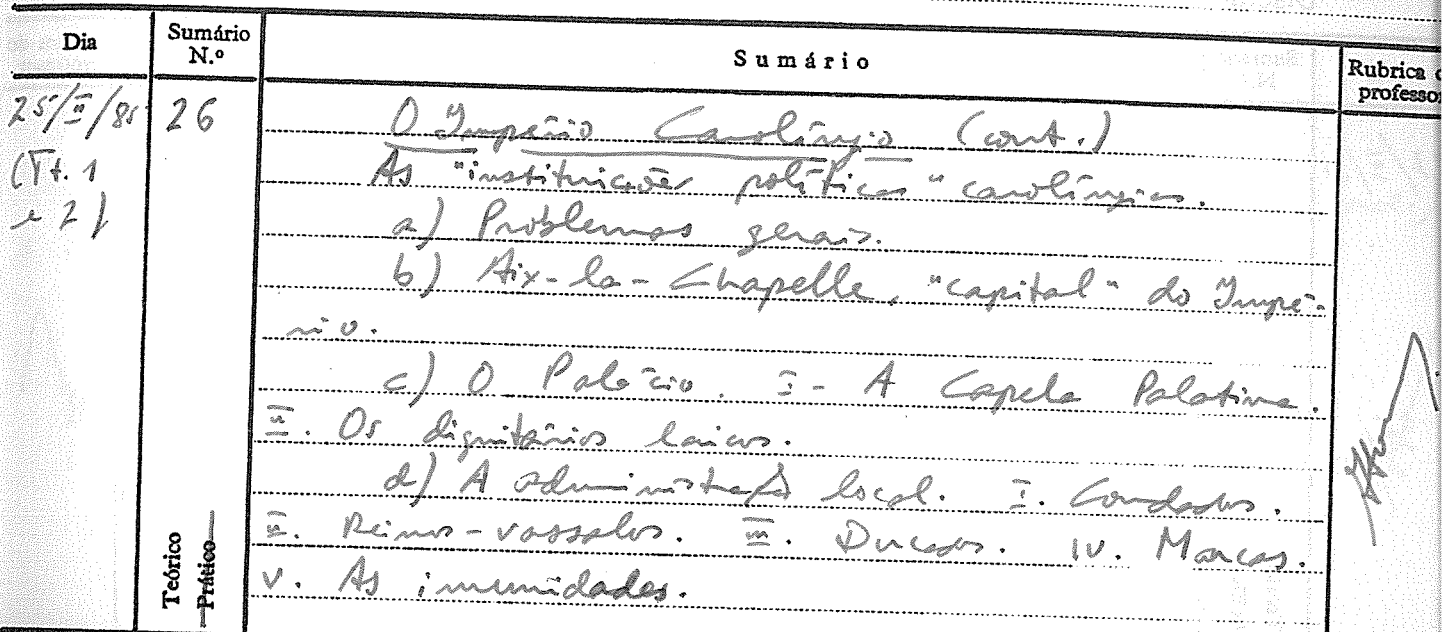 Dia
Sumário
N.º
Sumário
Rubrica
professor
25/III/85
(Tt. 1
e 2)
26
O Império Carolíngio (cont.)
As "instituições políticas" carolíngias.
a) Problemas gerais.
b) Aix-la-Chapelle, "capital" do Impé-
rio.
c) O Palácio. I - A Capela Palatina.
II. Os dignitários laicos.
d) A administração local. I. Condados.
II. Reinos-vassalos. III. Ducados. IV. Marcas.
V. As imunidades.
Teórico
Prático